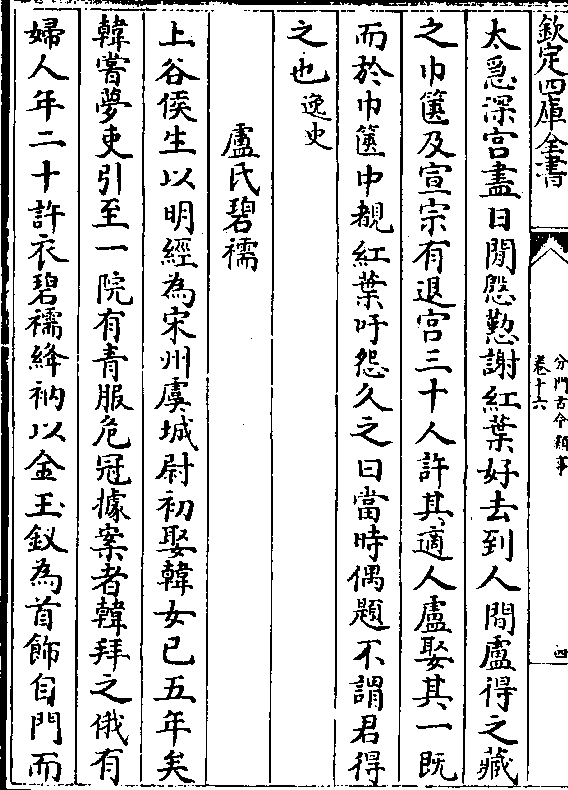 欽定四庫全書
分門古今類事
卷十六
四
太急深宮盡日閒慇懃謝紅葉好去到人間盧得之藏
之巾篋及宣宗有退宮三十人許其適人盧娶其一既
而於巾篋中覩紅葉吁怨久之曰當時偶題不謂君得
之也逸史
盧氏碧襦
上谷侯生以明經為宋州虞城尉初娶韓女已五年矣
韓嘗夢吏引至一院有青服危冠據案者韓拜之俄有
婦人年二十許衣碧襦絳衲以金玉釵為首飾自門而